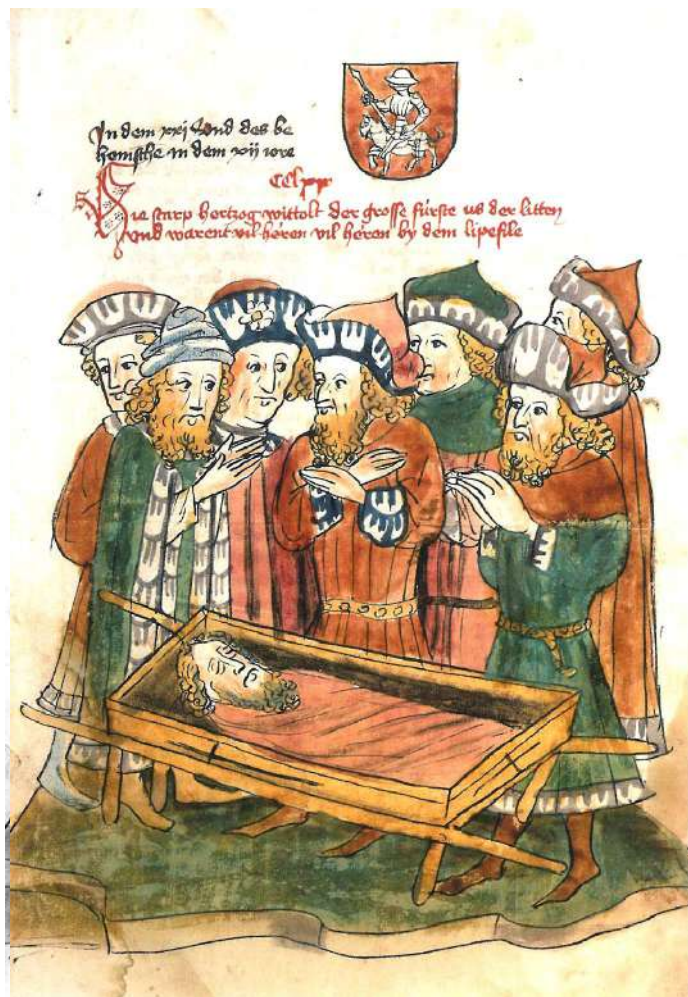 In dem xxj Vnd des be
hemsche in dem xij iore
CClxx
Hie starp hertzog wittolt der grosse fürste us der litten
Vnd warent vil heren vil heren by dem lipefile